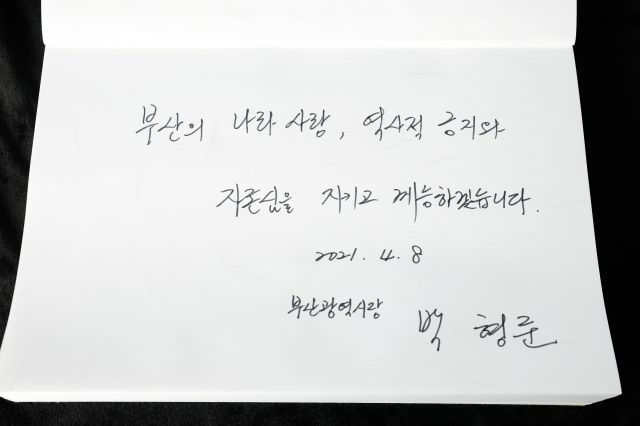 부산의 나라 사랑, 역사적 긍지와
자존심을 지키고 계승하겠습니다.
2021. 4. 8
부산광역시장 박 형 준